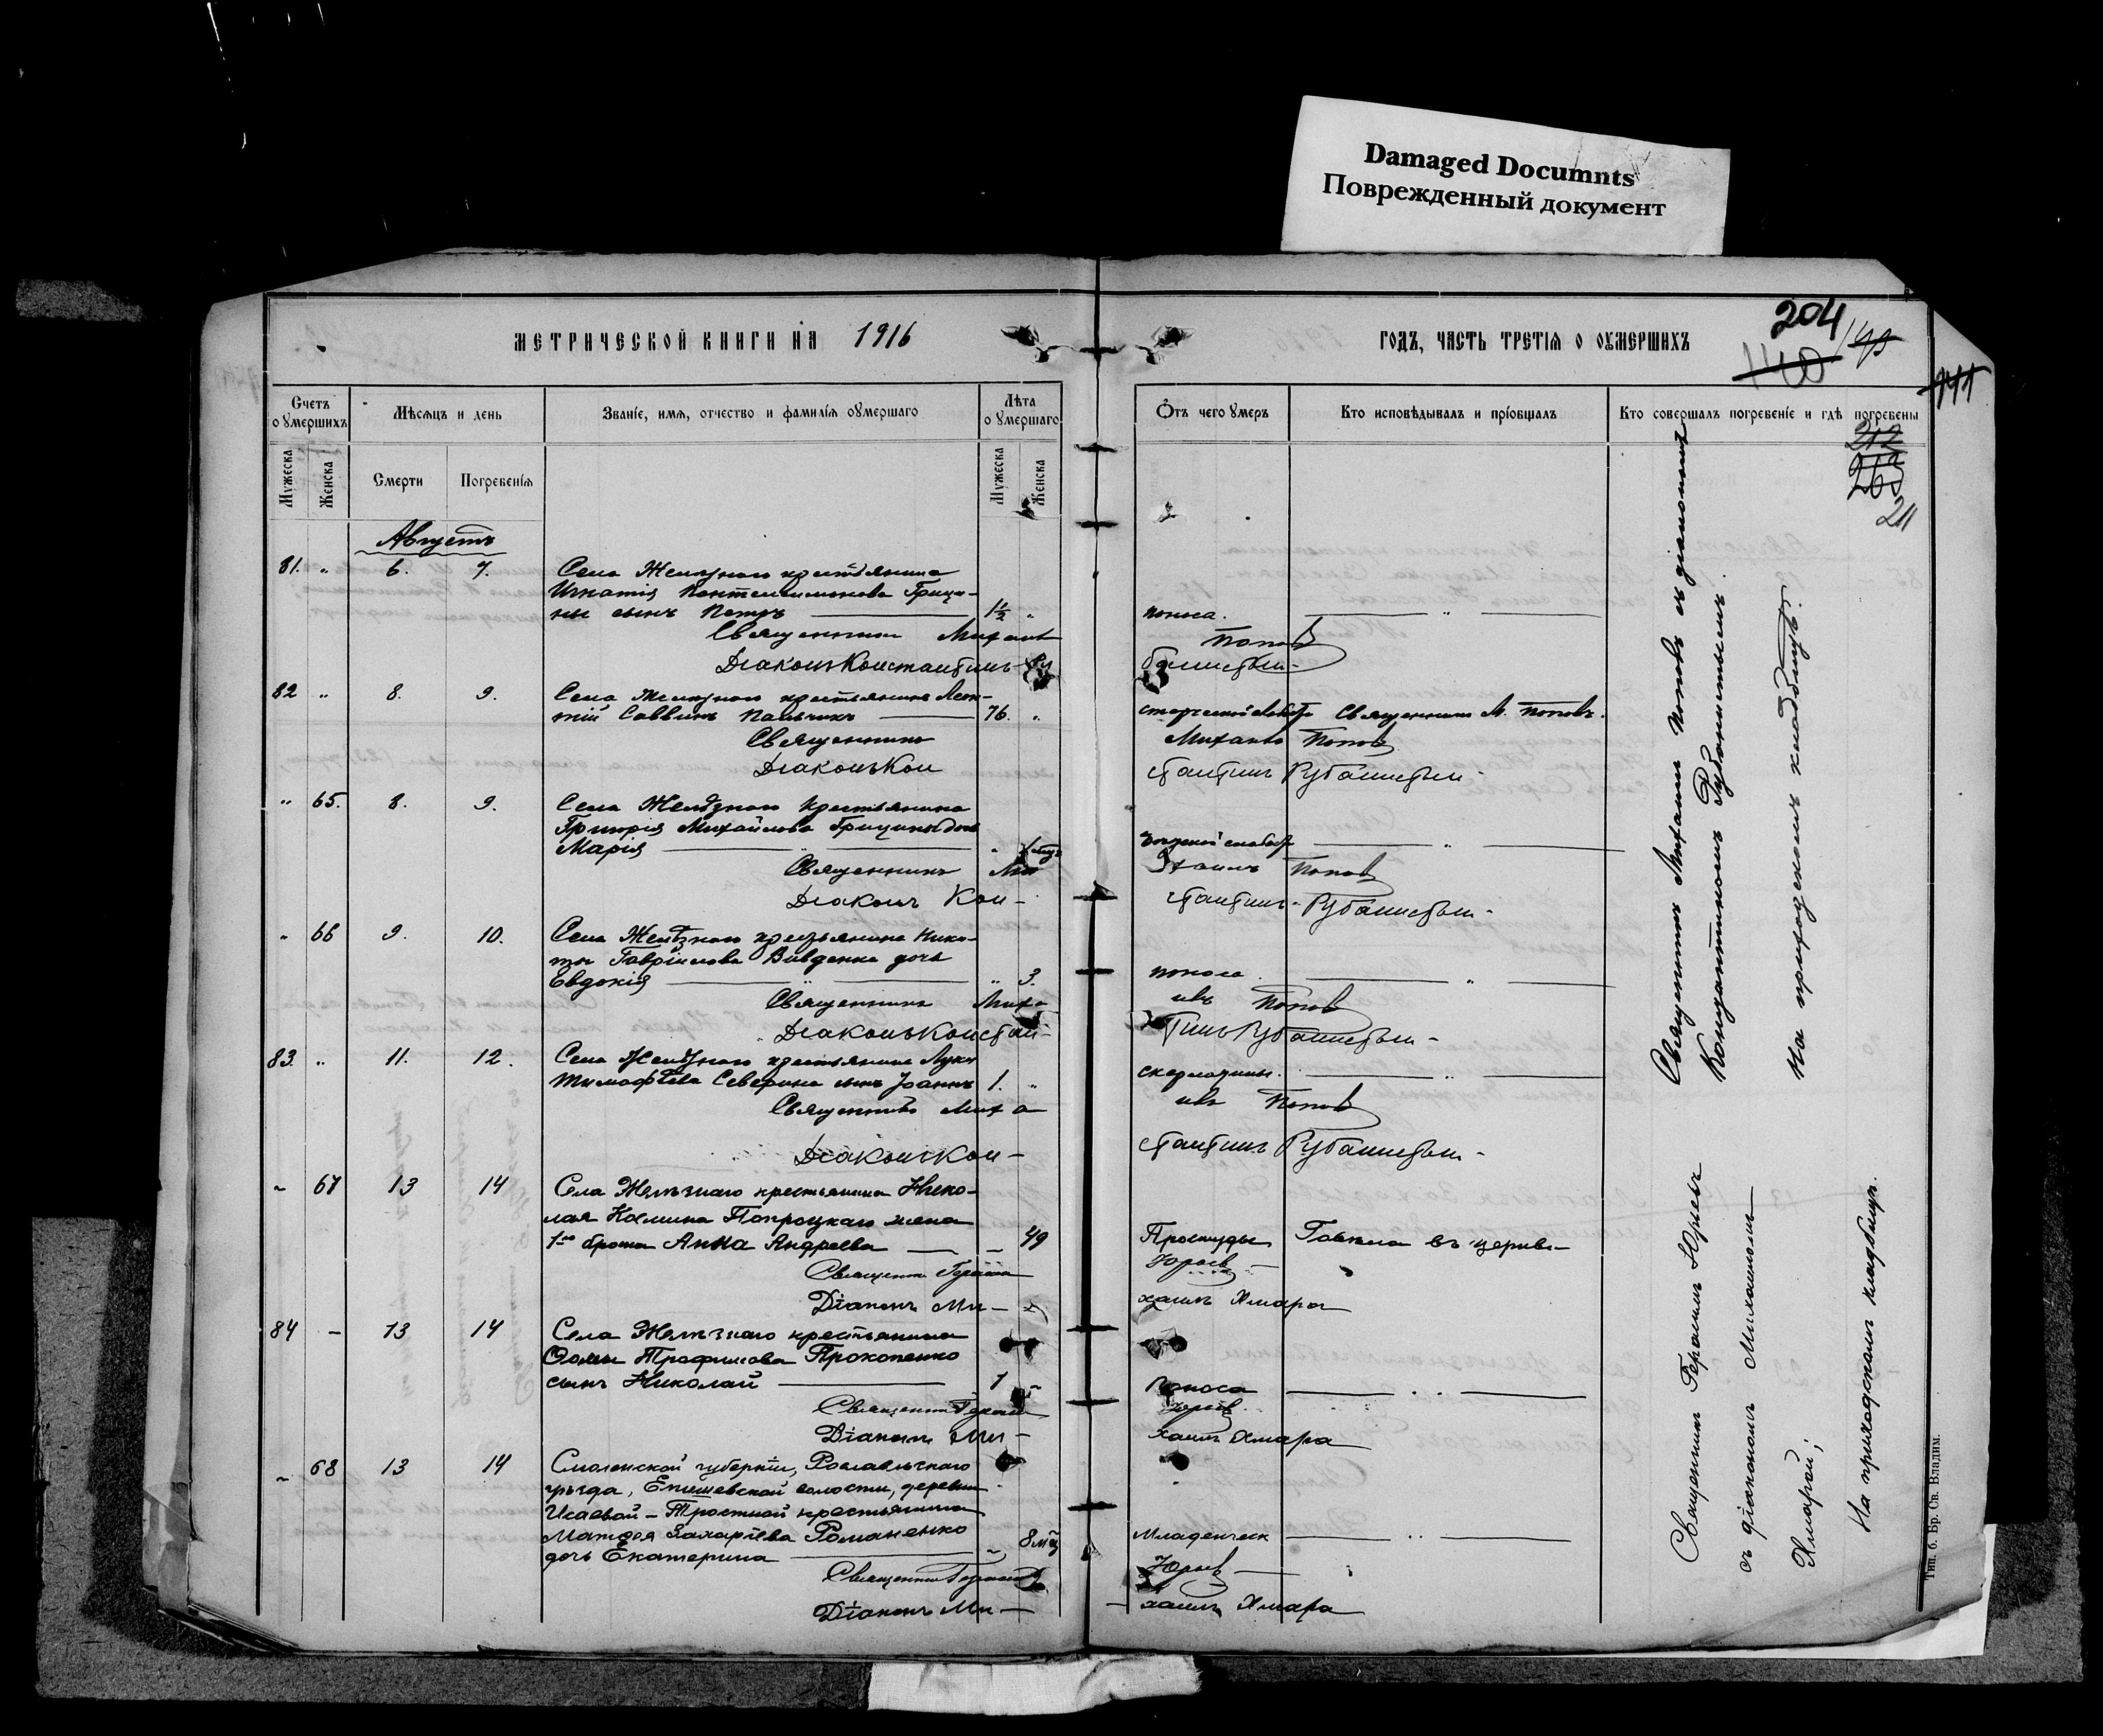 Damaged Documnts
Поврежденный документ
МЕТРИЧЕСКОЙ КНИГИ НА 1916
ГОДЪ, ЧАСТЬ ТРЕТІЯ О ОУМЕРШИХЪ
204
140
141
Счетъ оумершихъ
Мѣсяцъ и день
Званіе, имя, отчество и фамилія оумершаго
Лѣта оумершаго
Отъ чего умеръ
Кто исповѣдывалъ и пріобщалъ
Кто совершалъ погребеніе и гдѣ погребены
212
211
Мужеска
Женска
Смерти
Погребенія
Мужеска
Женска
Августъ
81. " 6. 7. Села Желѣзнаго крестьянина
Игнатія Пантелеимонова Грици-
ны сынъ Петръ 1½ " поноса. "
Священникъ Михаилъ Поповъ
Діаконъ Константинъ
82 " 8. 9. Села Желѣзнаго крестьянинъ Леон-
тій Саввинъ Пальчикъ 76. " старческой слабости Священникъ М. Поповъ.
Священникъ Михаилъ Поповъ
Діаконъ Константинъ Рубанистый
" 65. 8. 9. Села Желѣзнаго крестьянина
Григорія Михайлова Грицины дочь
Марія " "
Священникъ Михаилъ Поповъ
Діаконъ Константинъ Рубанистый
" 66 9. 10. Села Желѣзнаго крестьянина Ники-
ты Гавріилова Вивденка дочь
Евдокія " " 3. поноса "
Священникъ Михаилъ Поповъ
Діаконъ Константинъ Рубанистый
83. " 11. 12. Села Желѣзнаго крестьянина Луки
Тимофѣева Северина сынъ Іоаннъ 1. " скарлатины. "
Священникъ Михаилъ Поповъ
Діаконъ Константинъ Рубанистый
Священникъ Михаилъ Поповъ съ діакономъ
Константиномъ Рубанистымъ.
На приходскомъ кладбищѣ.
" 67 13 14 Села Желѣзнаго крестьянина Нико-
лая Попроцкаго жена
1го брака Анна Андреева 49 Простуды Говѣла въ церкви
Священникъ Герасимъ Юрьевъ
Діаконъ Михаилъ Хмара
84 — 13 14 Села Желѣзнаго крестьянина
Ѳомы Трофимова Прокопенко
сынъ Николай 1 Поноса
Священникъ Герасимъ Юрьевъ
Діаконъ Михаилъ Хмара
68 13 14 Смоленской губерніи, Рославльскаго
уѣзда, Епишевской волости, деревни
Исаевой-Тростной крестьянина
Матѳея Захаріева Романенко
дочь Екатерина 8 мѣс Младенческ
Священникъ Герасимъ Юрьевъ
Діаконъ Михаилъ Хмара
Священникъ Герасимъ Юрьевъ
съ діакономъ Михаиломъ
Хмарой;
На приходскомъ кладбищѣ.
Тип. б. Бр. Св. Владим.